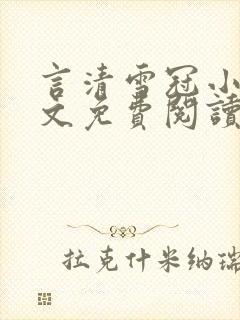 言清雪冠小
文免費閱讀
拉克什米纳瑞